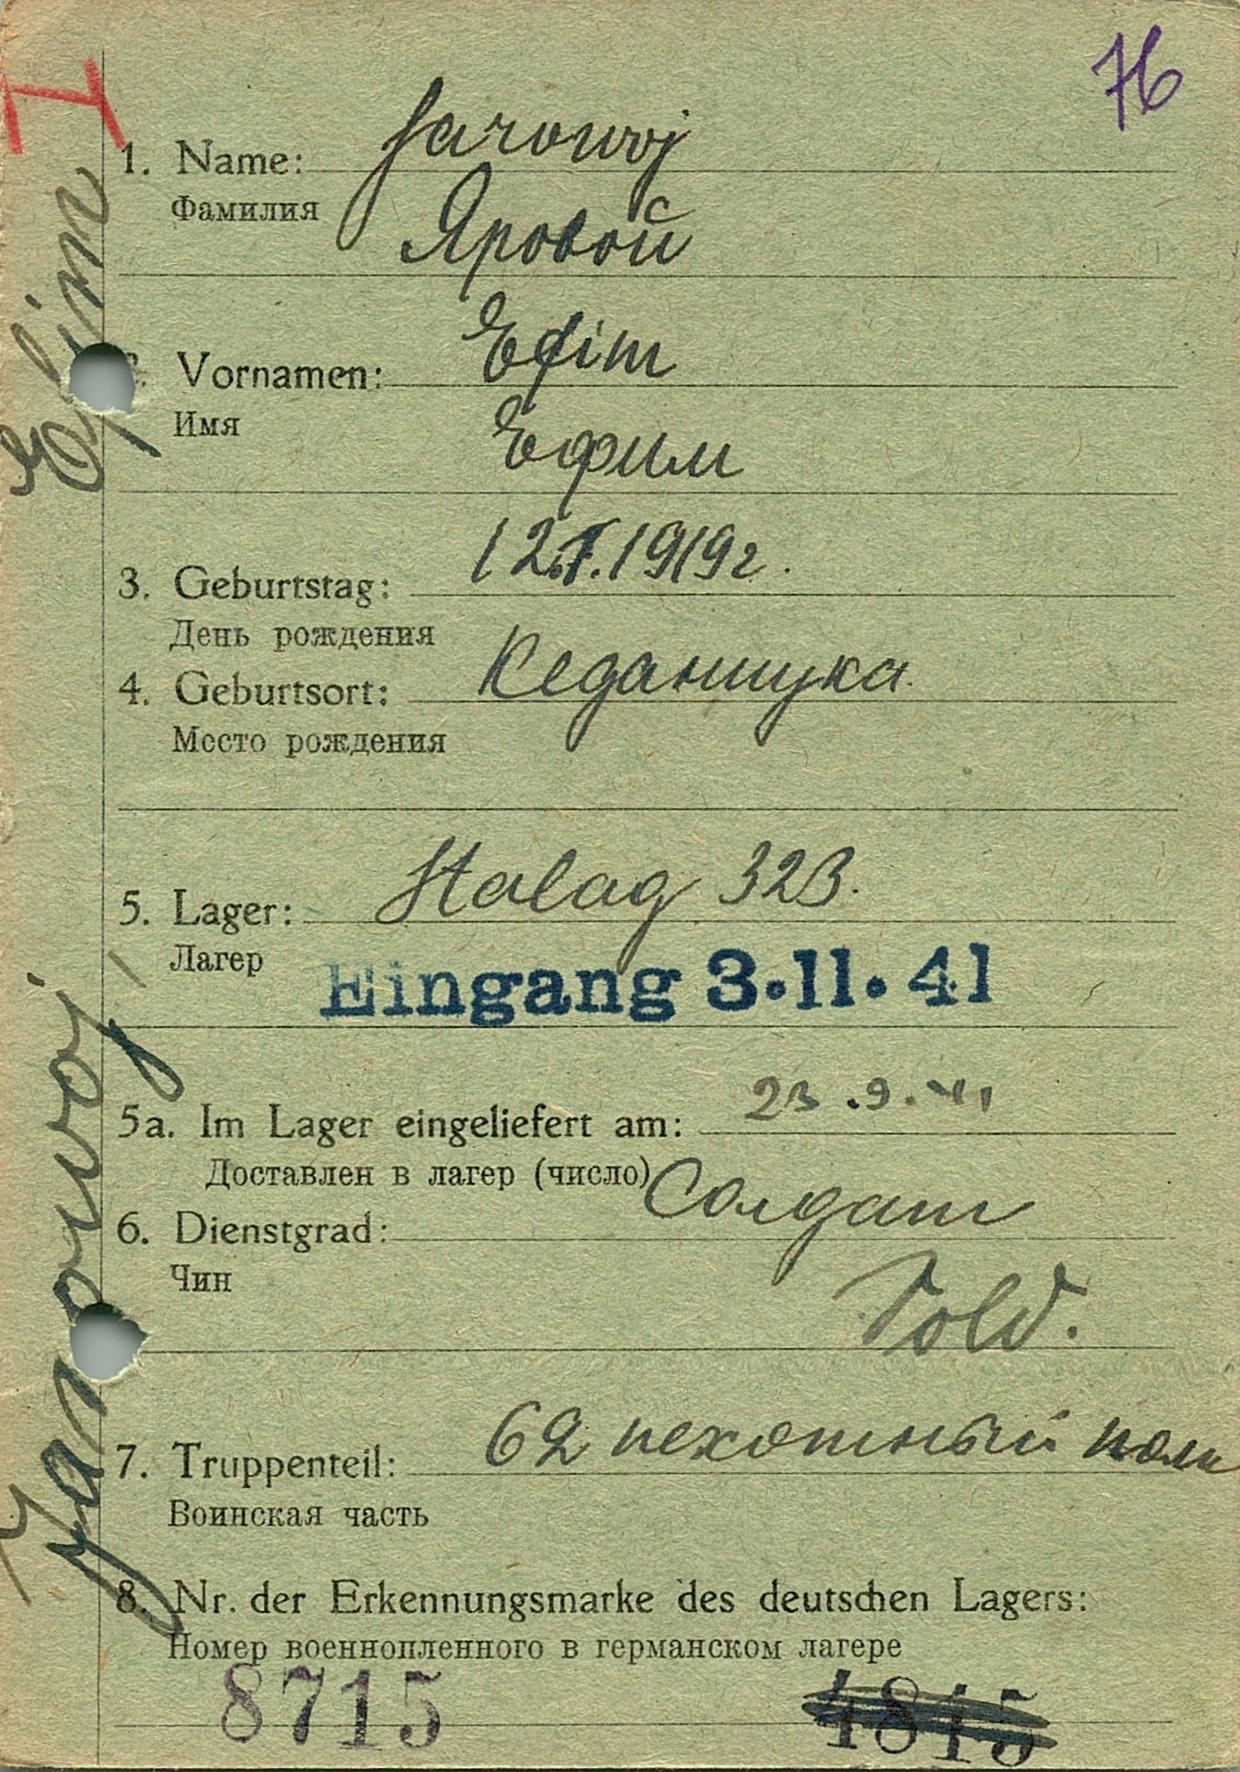 76
1. Name: Jarowoj
Фамилия
Яровой
Vornamen: Efim
Имя
Ефим
3. Geburtstag: 12.1.1919г.
День рождения
4. Geburtsort: Кеданщука
Место рождения
5. Lager: Stalag 323.
Лагер
Eingang 3.11.41
5a. Im Lager eingeliefert am: 23.9.41
Доставлен в лагер (число)
6. Dienstgrad: Солдат
Чин
Sold.
7. Truppenteil: 62 пехотный полк
Воинская часть
8. Nr. der Erkennungsmarke des deutschen Lagers:
Номер военнопленного в германском лагере
8715 4815
Jarowoj, Efim